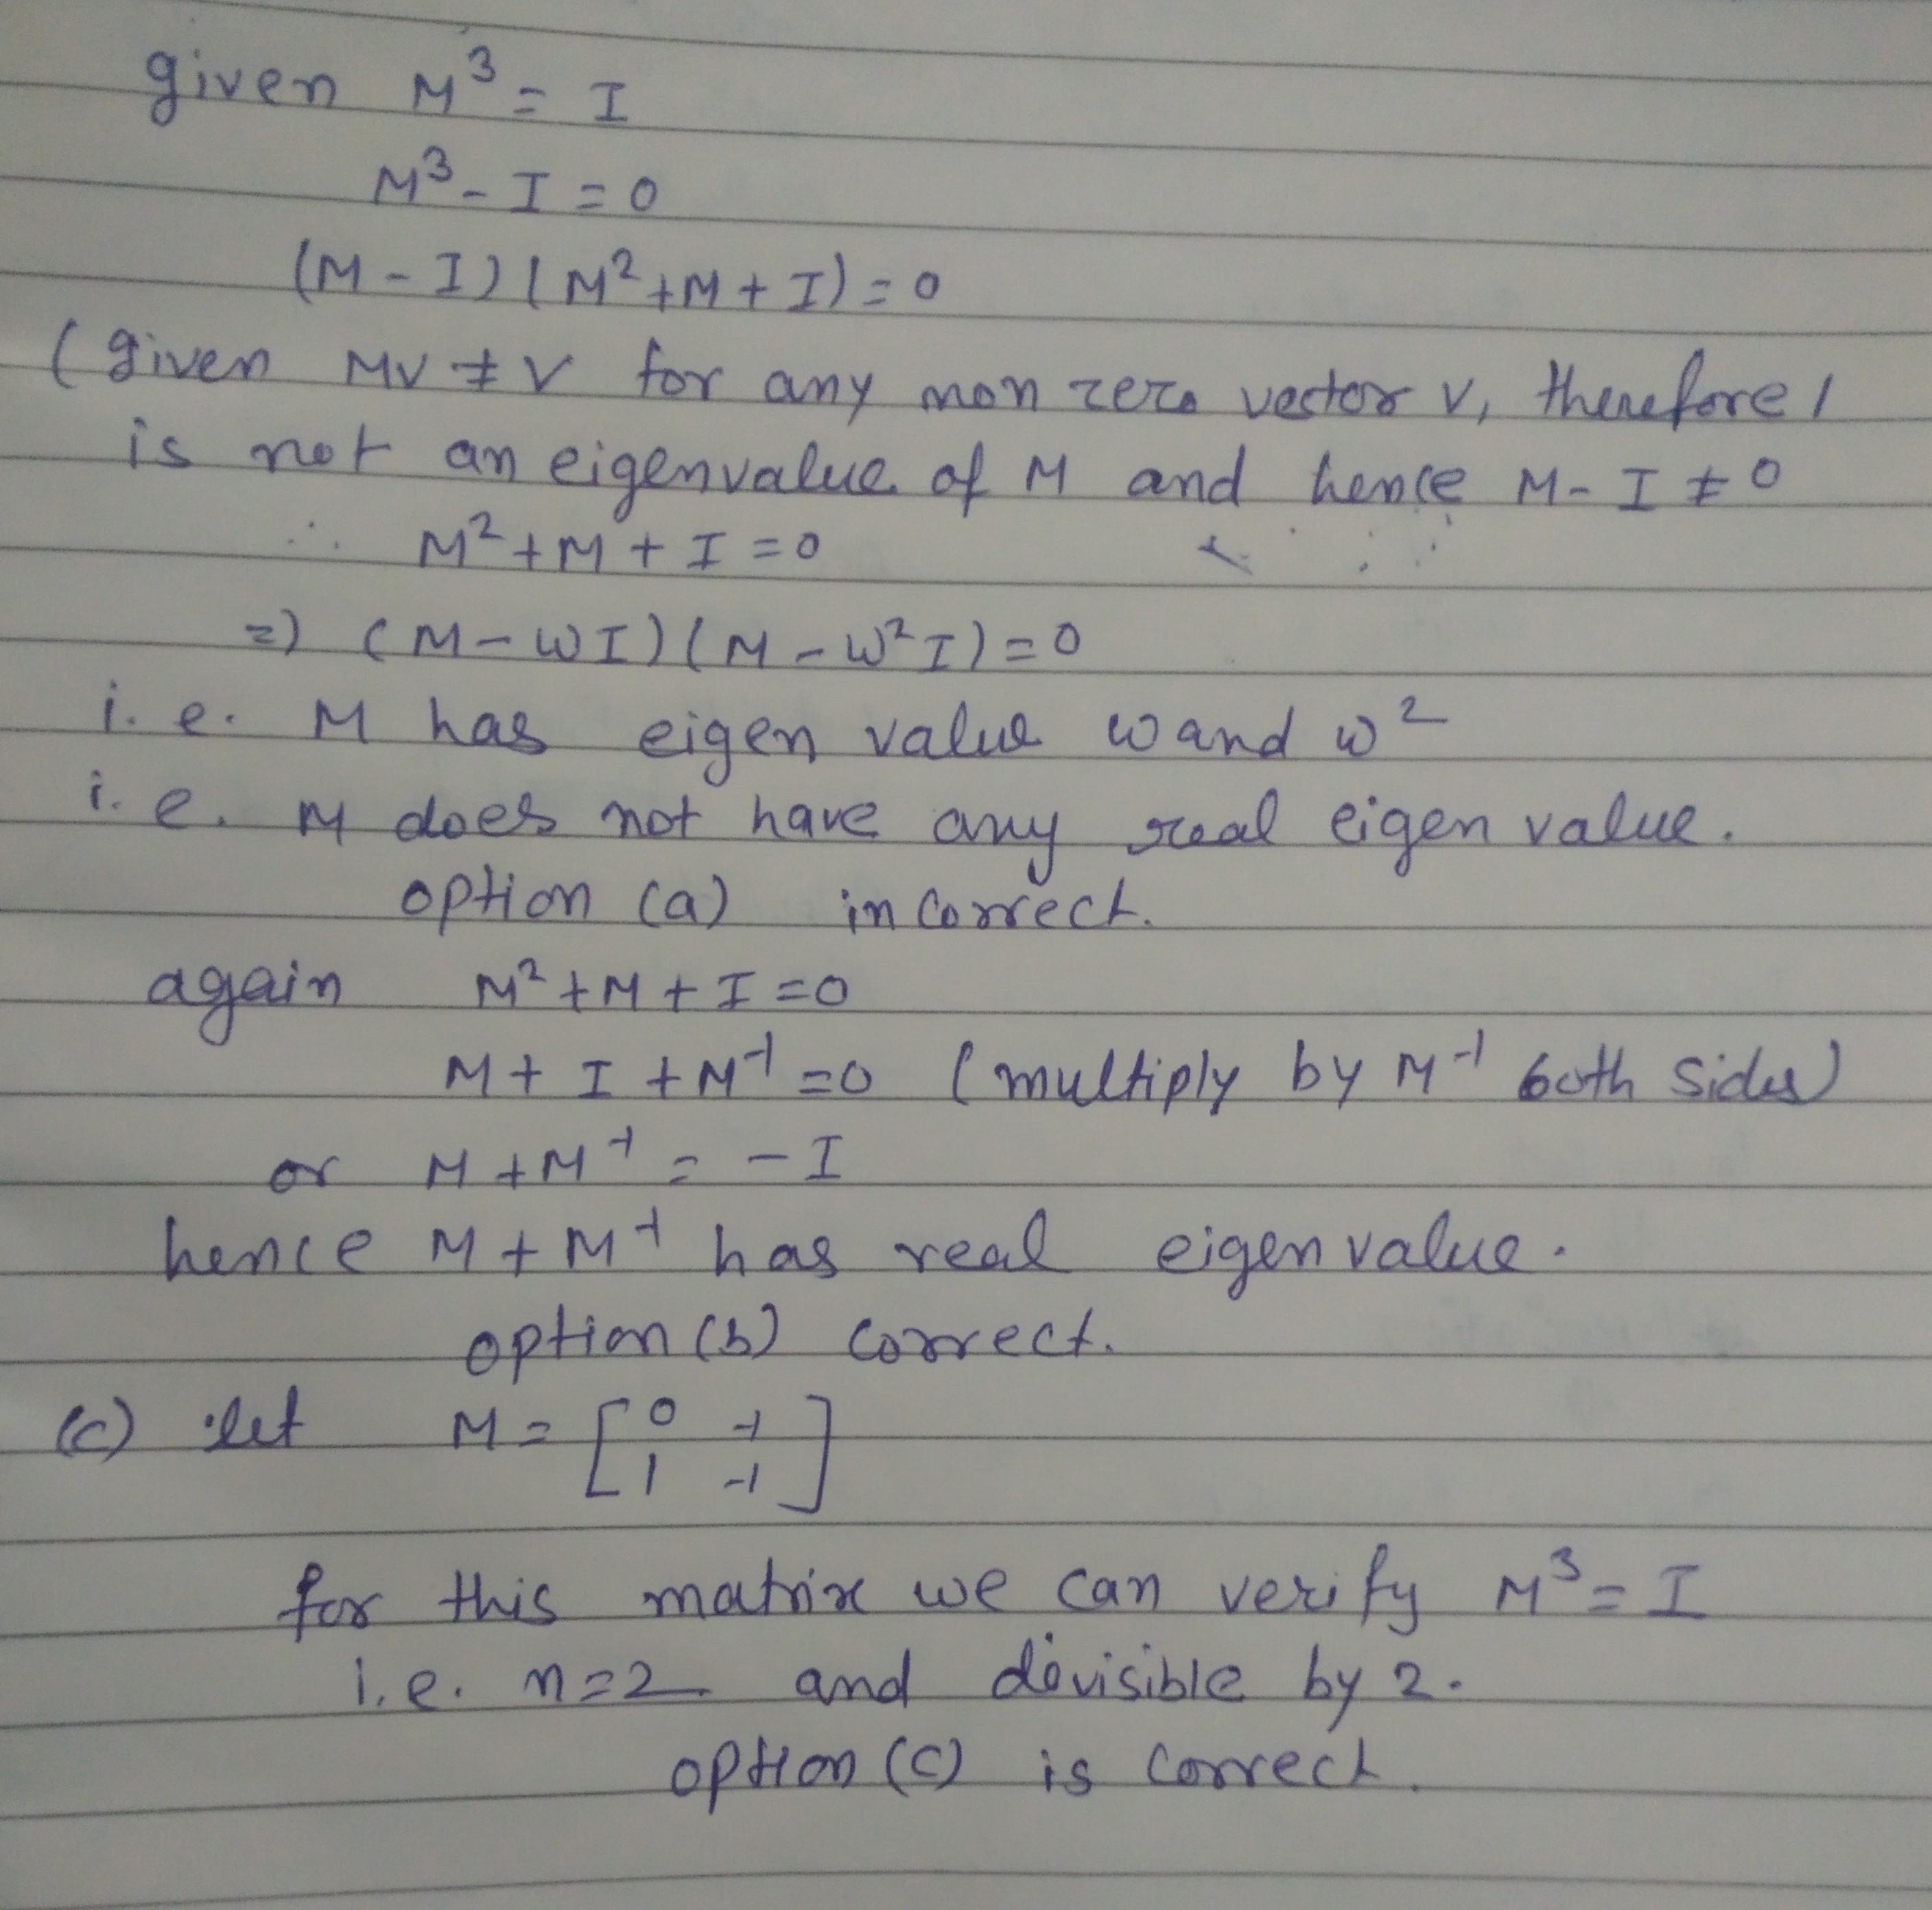 given M³ = I
M³ - I = 0
(M - I) ( M² + M + I) = 0
( given MV ≠ V for any mon zero vector V, therefore 1
is not an eigenvalue of M and hence M - I ≠ 0
∴ M² + M + I = 0
=) ( M - WI) ( M - W² I ) = 0
i. e. M has eigen value ω and ω²
i. e. M does not have any real eigen value.
option (a) incorrect.
again M² + M + I = 0
M + I + M⁻¹ = 0 ( multiply by M⁻¹ both sides)
or M + M⁻¹ = - I
hence M + M⁻¹ has real eigen value.
option (b) correct.
(c) let M = [ 0 -1
1 -1 ]
for this matrix we can verify M³ = I
i.e. n = 2 and divisible by 2.
option (c) is correct.